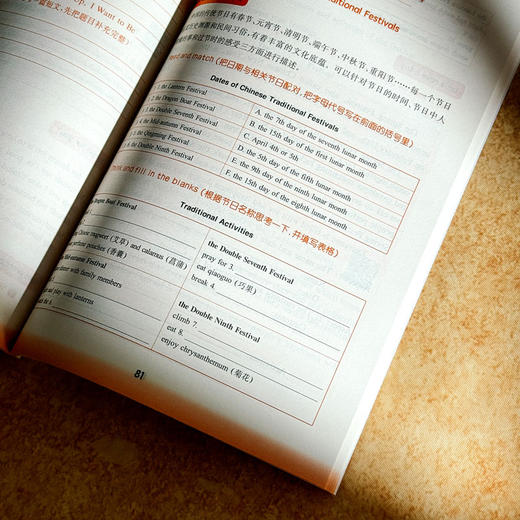 Up. I Want to Be
篇短文，先把题目补充完整）
ditional Festivals
传统节日有春节、元宵节、清明节、端午节、中秋节、重阳节……每一个节日
渊源和民间习俗，有着丰富的文化底蕴。可以针对节日的时间、节日中人
和过节时的感受三方面进行描述。
and match（把日期与相关节日配对，把字母代号写在前面的括号里）
Dates of Chinese Traditional Festivals
1. the Lantern Festival
2. the Dragon Boat Festival
3. the Double Seventh Festival
4. the Mid-autumn Festival
5. the Qingming Festival
6. the Double Ninth Festival
A. the 7th day of the seventh lunar month
B. the 15th day of the first lunar month
C. April 4th or 5th
D. the 5th day of the fifth lunar month
E. the 9th day of the ninth lunar month
F. the 15th day of the eighth lunar month
and fill in the blanks（根据节日名称思考一下，并填写表格）
Traditional Activities
Boat Festival
ragwort（艾草）and calamus（菖蒲）
perfume pouches（香囊）
autumn Festival
dinner with family members
and play with lanterns
6.
the Double Seventh Festival
pray for 3.
eat qiaoguo（巧果）
break 4.
the Double Ninth Festival
climb 7.
eat 8.
enjoy chrysanthemum（菊花）
81